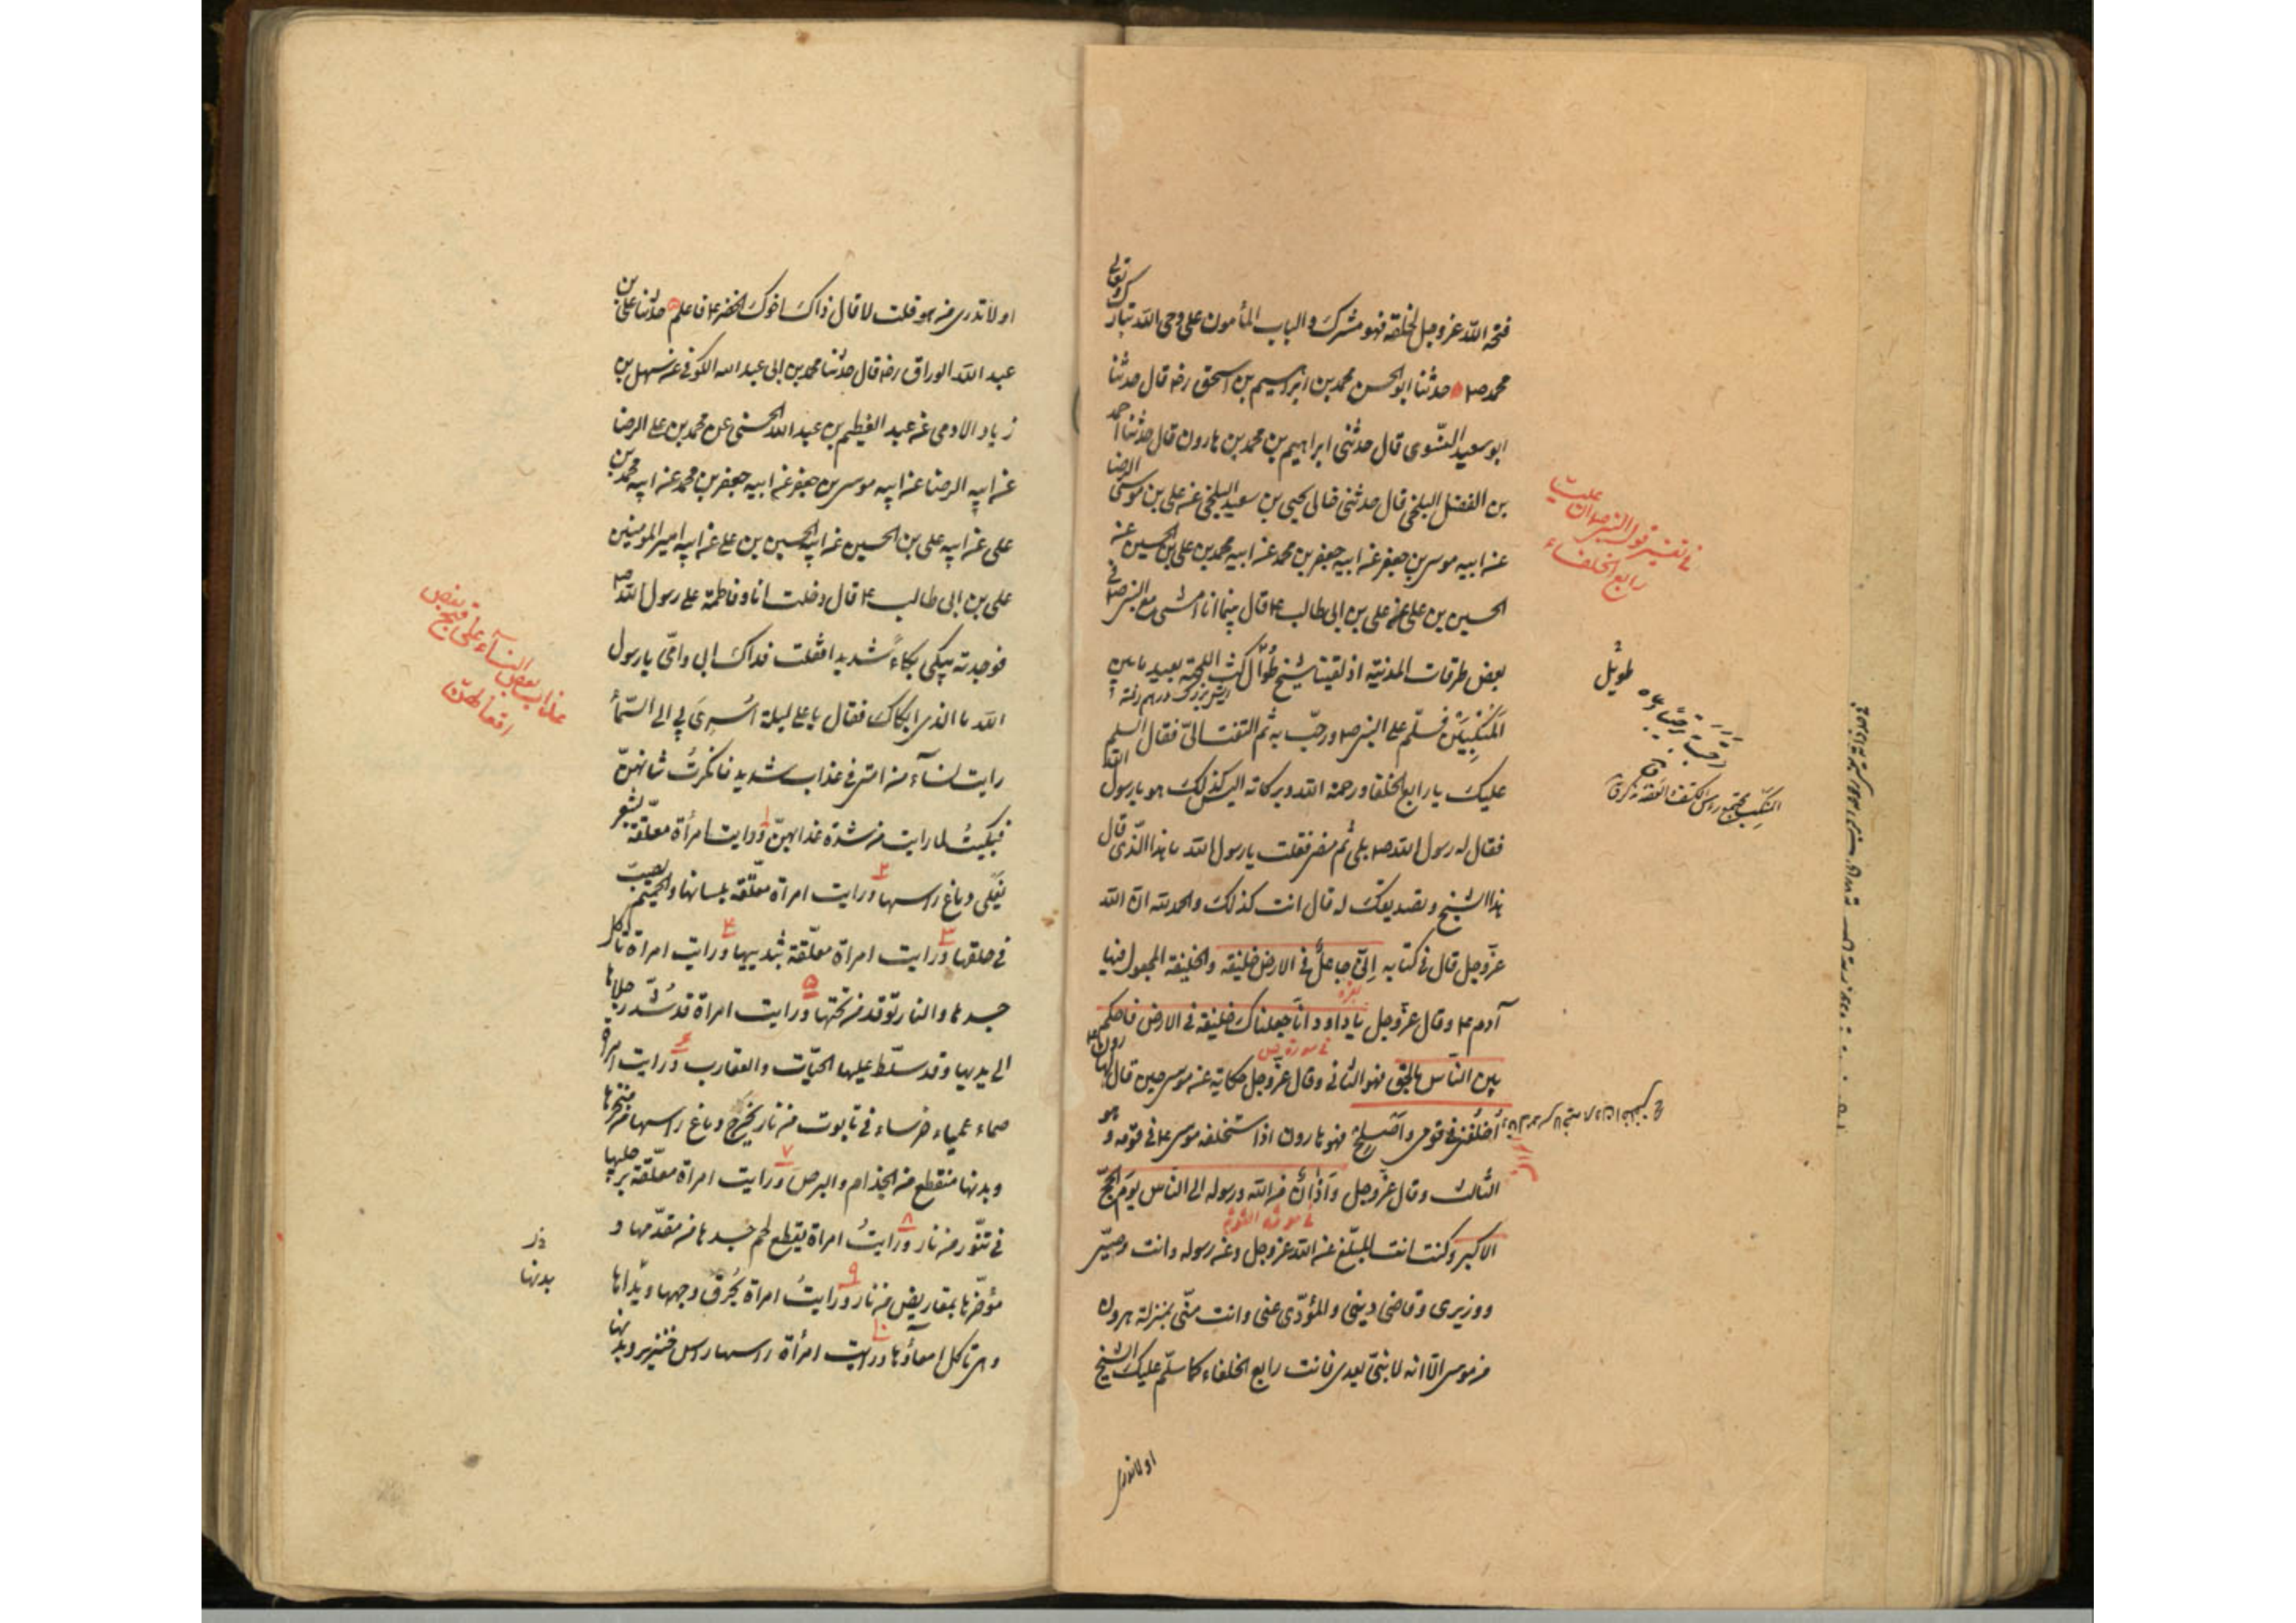 فتحه الله عز وجل لخلقه فهو مشرك والباب المأمون على وحى الله تبارك وتعالى
محمد ص حدثنا ابو الحسن محمد بن ابراهيم بن اسحق رضه قال حدثنا
ابو سعيد النسوى قال حدثنى ابراهيم بن محمد بن هارون قال حدثنا احمد
بن الفضل البلخى قال حدثنى خالى يحيى بن سعيد البلخى عن على بن موسى الرضا
عن ابيه موسى بن جعفر عن ابيه جعفر بن محمد عن ابيه محمد بن على بن الحسين عن
الحسين بن على عن على بن ابى طالب ع قال بينما انا امشى مع النبى ص فى
بعض طرقات المدينة اذ لقينا شيخ طُوّال كث اللحية بعيد ما بين
المَنكِبَيْن فسلّم على النبى ص ورحّب به ثم التفت الىّ فقال السلم
عليك يا رابع الخلفا ورحمة الله وبركاته اليس كذلك هو يا رسول الله
فقال له رسول الله ص بلى ثم مضى فقلت يا رسول الله ما هذا الذى قال
هذا الشيخ وتصديقك له قال انت كذلك والحمد لله ان الله
عزّ وجل قال فى كتابه اِنّى جاعلٌ فى الارض خليفة والخليفة المجعول فيها
بقره
آدم ع وقال عزّ وجل يا داود انّا جعلناك خليفة فى الارض فاحكم
فى سورة ص
بين النّاس بالحق فهو الثانى وقال عزّ وجل حكاية عن موسى حين قال لهارون
اُخلُفنى فى قومى وَاَصْلِح فهو هارون اذا استخلفه موسى ع فى قومه وهو
الثالث وقال عزّ وجل وَاَذانٌ من الله ورسوله الى الناس يوم الحجّ
فى سورة التوبة
الاكبر وكنت انت المبلّغ عن الله عز وجل وعن رسوله وانت وصيّى
ووزيرى وقاضى دينى والمؤدّى عنى وانت منّى بمنزلة هرون
من موسى الّا انه لا نبىّ بعدى فانت رابع الخلفاء كما سلّم عليك الشيخ
او لا تدرى
فى تفسير قول النبى ص ان عليا
رابع الخلفاء
طويل
او لا تدرى من هو قلت لا قال ذاك اخوك الخضر ع فاعلم حدثنا على بن
عبد الله الوراق رضه قال حدثنا محمد بن ابى عبد الله الكوفى عن سهل بن
زياد الادمى عن عبد العظيم بن عبد الله الحسنى عن محمد بن على الرضا
عن ابيه الرضا عن ابيه موسى بن جعفر عن ابيه جعفر بن محمد عن ابيه محمد بن
على عن ابيه على بن الحسين عن ابيه الحسين بن على عن ابيه امير المومنين
على بن ابى طالب ع قال دخلت انا وفاطمة على رسول الله ص
فوجدته يبكى بكاءً شديدا فقلت فداك ابى وامّى يا رسول
الله ما الذى ابكاك فقال يا على ليلة اُسْرِىَ بى الى السّمآ
رايت نسآء من امتى فى عذاب شديد فانكرتُ شانهنّ
فبكيتُ لما رايت من شدة عذابهنّ ورايت امرأة معلّقة بشعر
يَغلى دماغ راسها ورايت امراة معلّقة بلسانها والحميم يصبّ
فى حلقها ورايت امراة معلّقة بثدييها ورايت امراة تاكل
جسدها والنار توقد من تحتها ورايت امراة قد شُدّ رجلاها
الى يديها وقد سلّط عليها الحيّات والعقارب ورايت امراة
صماء عمياء خرساء فى تابوت من نار يخرج دماغ راسها من منخرها
وبدنها منقطع من الجذام والبرص ورايت امراة معلّقة برجليها
فى تنّور من نار ورايتُ امراة يقطع لحم جسدها من مقدّمها و
مؤخّرها بمقاريض من نار ورايتُ امراة يُحرَق وجهها ويداها
وهى تاكل امعآءها ورايت امرأة راسها راس خنزير وبدنها
عذاب بعض النسآء على قبيح بعض
افعالهنّ
بدنها